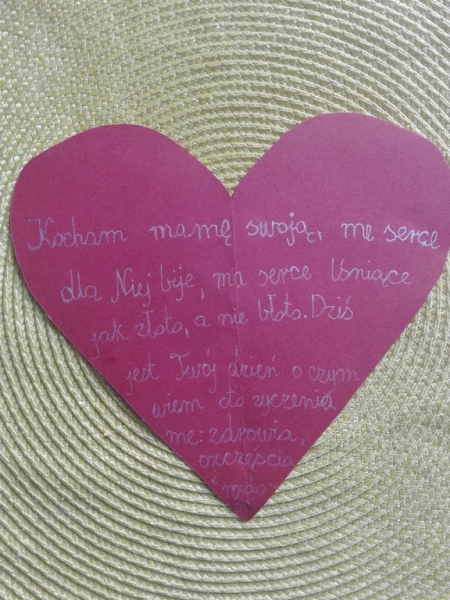 Kocham mamę swoją, me serce
dla Niej bije, ma serce lśniące
jak złoto, a nie błoto. Dziś
jest Twój dzień o czym
wiem oto życzenia
me: zdrowia,
szczęścia
i